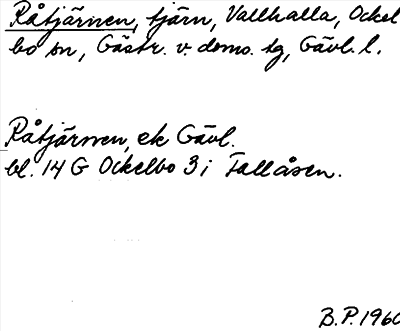 Råtjärnen, tjärn, Vallhalla, Ockel
bo sn, Gästr. v. doms. tg, Gävl. l.
Råtjärnen, ek Gävl.
bl. 14 G Ockelbo 3 i Tallåsen.
B.P. 1960